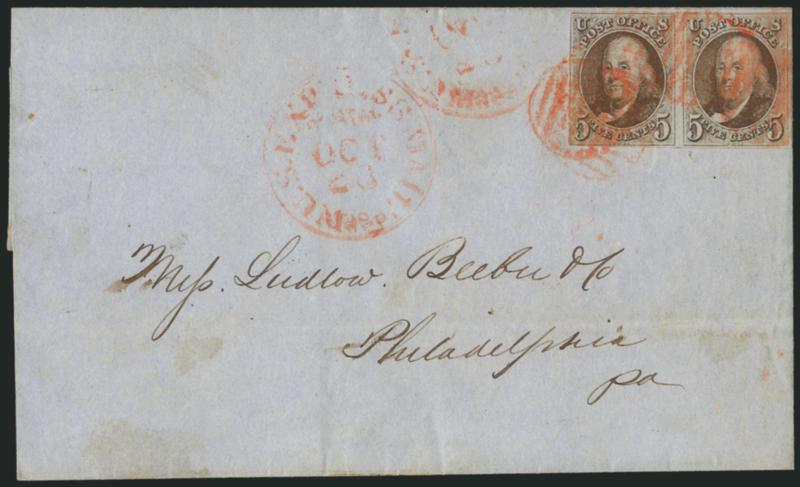 U S U S
POST OFFICE POST OFFICE
5 FIVE CENTS 5 5 FIVE CENTS 5
U.S. EXPRESS MAIL
OCT
23
Mess. Ludlow. Beebee & Co
Philadelphia
Pa